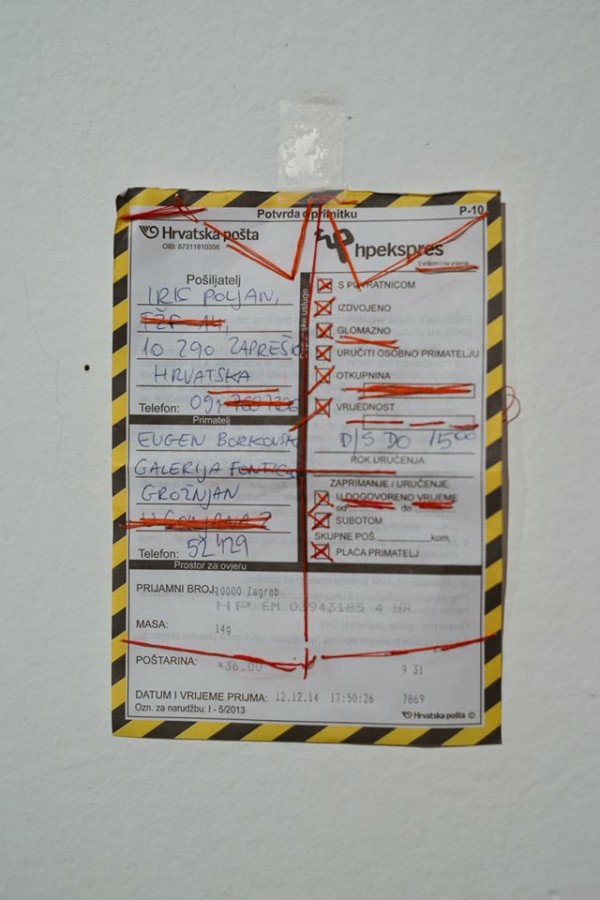 Potvrda o primitku P-10
Hrvatska pošta
OIB: 87311810356
hpekspres
S vama i na vrijeme
Pošiljatelj
IRIC POLJAN,
10 290 ZAPREŠIĆ
HRVATSKA
Telefon: 091
Primatelj
EUGEN BORKOVSKY
GALERIJA FONTICUS
GROŽNJAN
Telefon: 52429
S POVRATNICOM
IZDVOJENO
GLOMAZNO
URUČITI OSOBNO PRIMATELJU
OTKUPNINA
VRIJEDNOST
D/S DO 1500
ROK URUČENJA:
ZAPRIMANJE / URUČENJE:
U DOGOVORENO VRIJEME
od do
SUBOTOM
SKUPNE POŠ. kom.
PLAĆA PRIMATELJ
Prostor za ovjeru
PRIJAMNI BROJ: 10000 Zagreb
HP EM 03943185 4 HR
MASA: 14g
POŠTARINA: *36.00 9 31
DATUM I VRIJEME PRIJMA: 12.12.14 17:50:26 7869
Ozn. za narudžbu: I - 5/2013
Hrvatska pošta ©